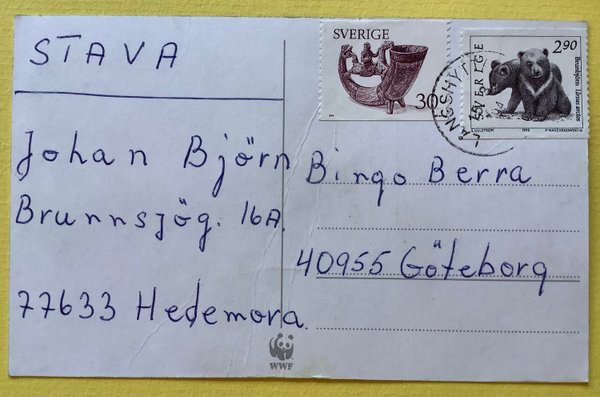 STAVA
Johan Björn
Brunnsjög. 16A.
77633 Hedemora.
SVERIGE
30
SVERIGE
2.90
Brunbjörn Ursus arctos
LÅNGSHYTTAN
Bingo Berra
40955 Göteborg
WWF